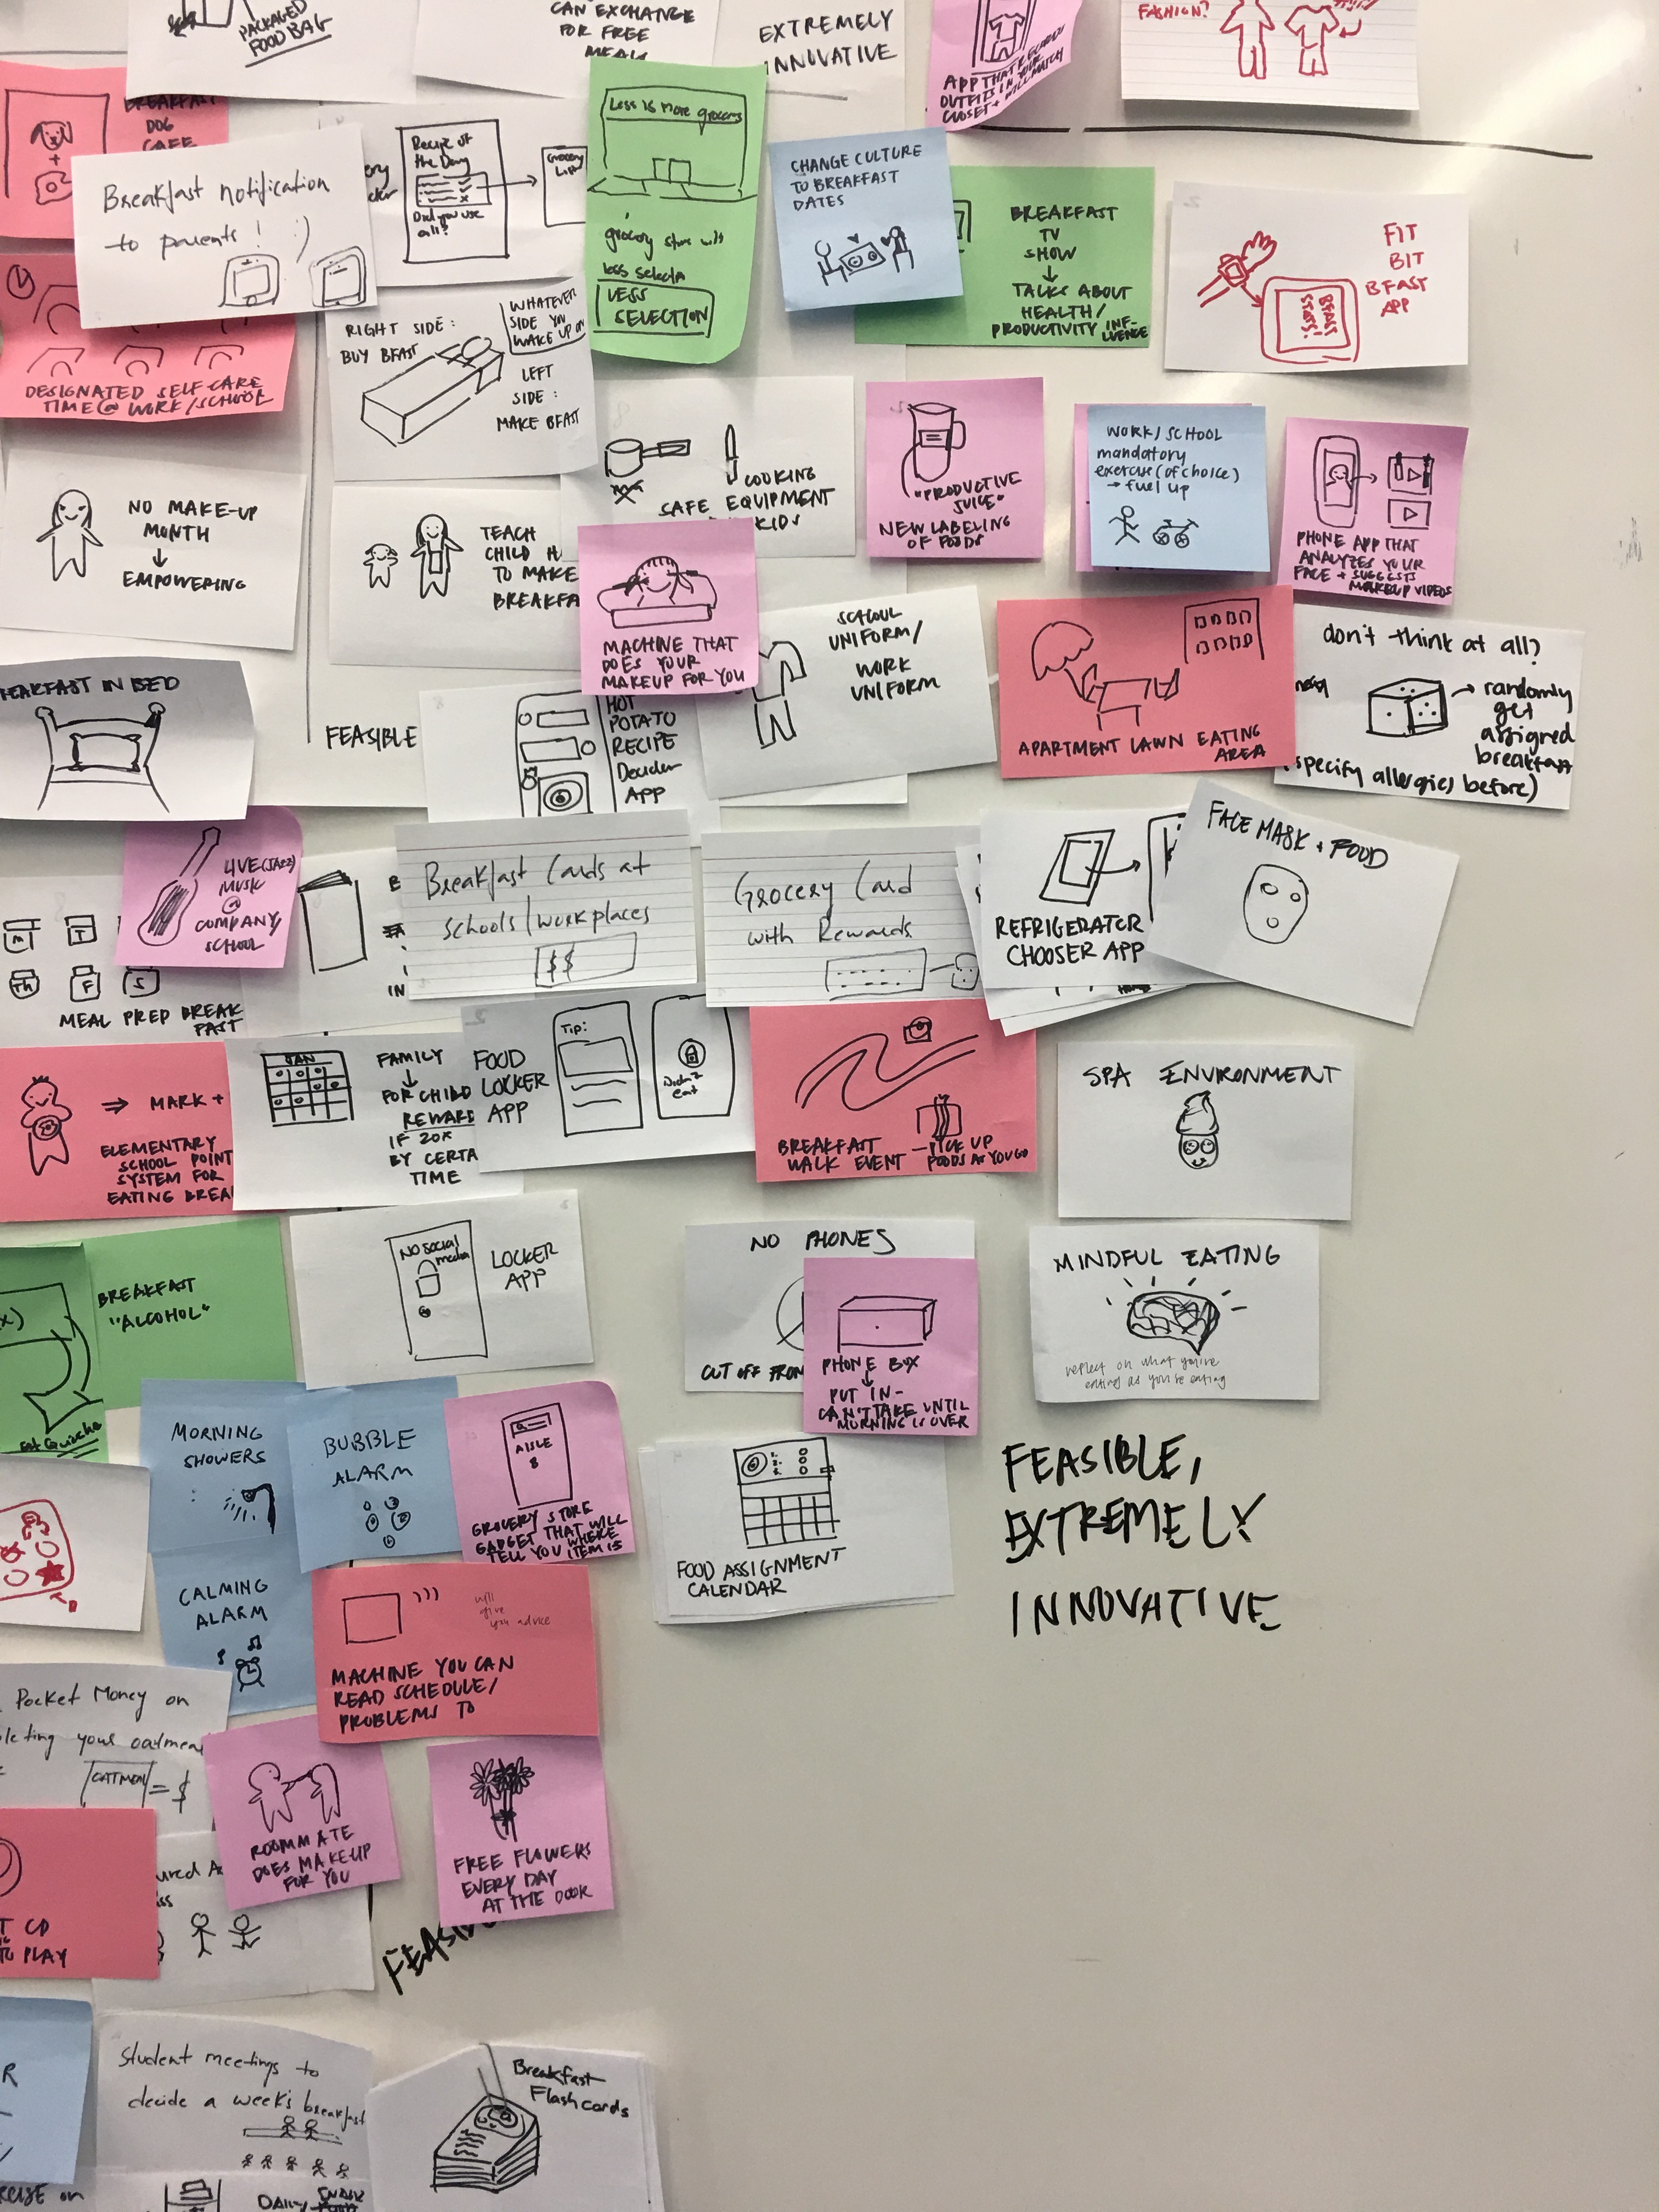 PACKAGED
FOOD BAG
CAN EXCHANGE
FOR FREE
MEALS
EXTREMELY
INNOVATIVE
APP THAT RECORDS
OUTFITS IN YOUR
CLOSET + WILL MATCH
FASHION?
BREAKFAST
DOG
CAFE
Breakfast notification
to parents! :)
Recipe of
the Day
Did you use
all?
Grocery
List
Less is more grocers
grocery store with
less selectn
LESS
SELECTION
CHANGE CULTURE
TO BREAKFAST
DATES
BREAKFAST
TV
SHOW
TALKS ABOUT
HEALTH/
PRODUCTIVITY INF-
LUENCE
FIT
BIT
BFAST
APP
BFAST
STATS!
DESIGNATED SELF CARE
TIME @ WORK/SCHOOL
RIGHT SIDE:
BUY BFAST
WHATEVER
SIDE YOU
WAKE UP ON
LEFT
SIDE:
MAKE BFAST
COOKING
SAFE EQUIPMENT
KIDS
"PRODUCTIVE
JUICE"
NEW LABELING
OF FOODS
WORK/SCHOOL
mandatory
exercise (of choice)
→ fuel up
PHONE APP THAT
ANALYZES YOUR
FACE + SUGGESTS
MAKEUP VIDEOS
NO MAKE-UP
MONTH
EMPOWERING
TEACH
CHILD H
TO MAKE
BREAKFA
MACHINE THAT
DOES YOUR
MAKEUP FOR YOU
SCHOOL
UNIFORM/
WORK
UNIFORM
APARTMENT LAWN EATING
AREA
don't think at all?
→ randomly
get
assigned
breakfast
specify allergies before)
EAKFAST IN BED
FEASIBLE
HOT
POTATO
RECIPE
Decider
APP
LIVE (JAZZ)
MUSIC
@
COMPANY/
SCHOOL
M
T
Th
F
S
MEAL PREP BREAK
FAST
B
IN
Breakfast Cards at
schools/workplaces
$$
Grocery Card
with Rewards
REFRIGERATOR
CHOOSER APP
FACE MASK + FOOD
⇒ MARK +
ELEMENTARY
SCHOOL POINT
SYSTEM FOR
EATING BREA
JAN
FAMILY
FOR CHILD
REWARD
IF 20X
BY CERTA
TIME
FOOD
LOCKER
APP
Tip:
Didn't
eat
BREAKFAST — PICK UP
WALK EVENT FOODS AS YOU GO
SPA ENVIRONMENT
BREAKFAST
"ALCOHOL"
NO social
media
LOCKER
APP
NO PHONES
CUT OFF FROM
PHONE BOX
PUT IN-
CAN'T TAKE UNTIL
MORNING IS OVER
MINDFUL EATING
reflect on what you're
eating as you're eating
MORNING
SHOWERS
BUBBLE
ALARM
AISLE
8
GROCERY STORE
GADGET THAT WILL
TELL YOU WHERE
ITEM IS
FOOD ASSIGNMENT
CALENDAR
FEASIBLE,
EXTREMELY
INNOVATIVE
CALMING
ALARM
will
give
you advice
MACHINE YOU CAN
READ SCHEDULE/
PROBLEMS TO
Pocket Money on
leting your oatmeal
OATMEAL = $
ROOMMATE
DOES MAKEUP
FOR YOU
FREE FLOWERS
EVERY DAY
AT THE DOOR
T CD
TO PLAY
FEASIB
Student meetings to
decide a week's breakfast
Breakfast
Flashcards
DAILY